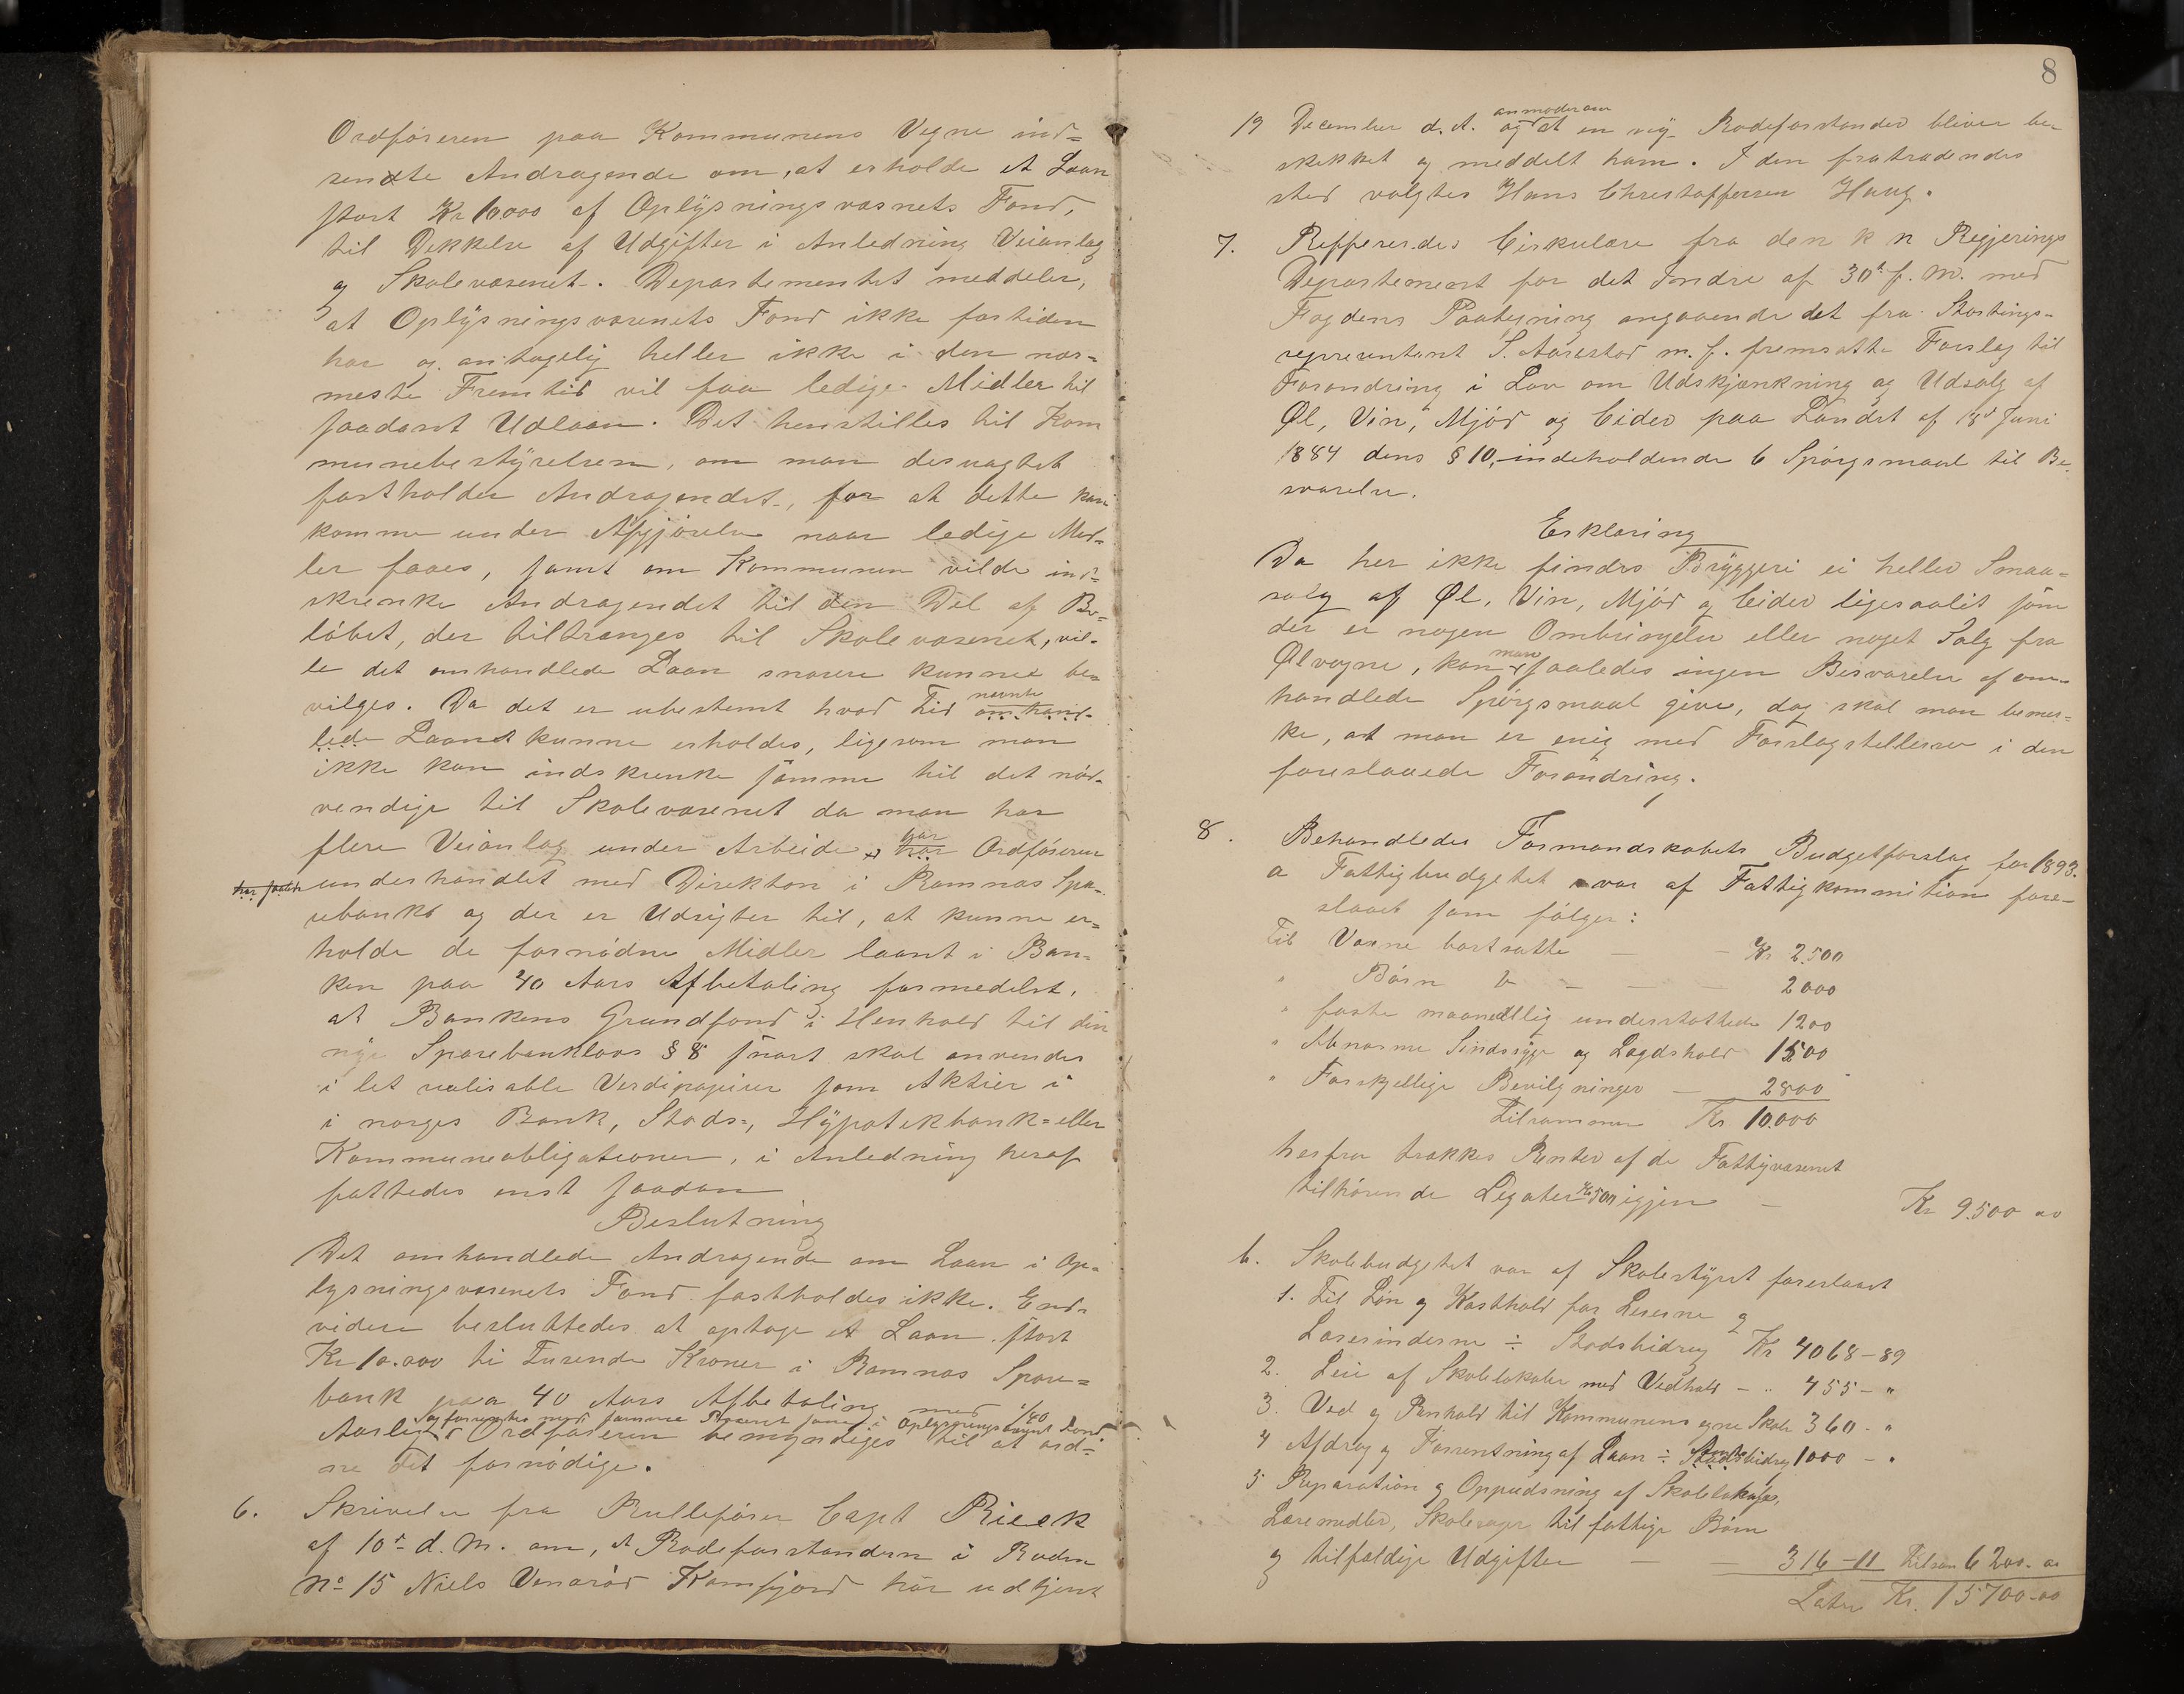 Ordføreren paa Kommunens Vegne ind=
sendte Andragende om, at erholde et Laan
stort Kr 10000 af Oplysningsvæsnets Fond,
til Dekkelse af Udgifter i Anledning Veianlæg
og Skolevæsenet. Departementet meddeler,
at Oplysningsvæsenets Fond ikke fortiden
har og antagelig heller ikke i den nær=
meste Fremtid vil faa ledige Midler til
saadant Udlaan. Det henstilles til Kom
munebestyrelsen, om man desuagtet
fastholder Andragendet, for at dette kan
komme under Afgjørelse naar ledige Mid=
ler faaes, samt om Kommunen vilde ind=
skrenke Andragendet til den Del af Be=
løbet, der tiltrænges til Skolevæsenet, vil=
le det omhandlede Laan snarere kunne be=
vilges. Da det er ubestemt hvad Tid nævnte omhand=
lede Laan kunne erholdes, ligesom man
ikke kan indskrenke samme til det nød=
vendige til Skolevæsenet da man har
flere Veianlæg under Arbeide, har har Ordføreren
underhandlet med Direktion i Ramnæs Spa=
rebank og der er Udsigter til, at kunne er=
holde de fornødne Midler laant i Ban=
ken paa 40 Aars Afbetaling formedelst,
at Bankens Grundfond i Henhold til den
nye Sparebanklovs § 8 snart skal anvendes
i let realisable Verdipapirer som Aktier i
i norges Bank, Stads=, Hypotekbank= eller
Kommuneobligationer, i Anledning heraf
fattedes enst saadan
Beslutning
Det omhandlede Andragende om Laan i Op=
lysningsvæsenets Fond fastholdes ikke. End=
videre besluttedes at optage et Laan stort
Kr 10.000 ti Tusende Kroner i Ramnæs Spare=
bank paa 40 Aars Afbetaling med 1/40
og forrentes med samme Procent som i Oplysningsvæsnets Fond.
Aarligt Ordføreren bemyndiges til at ord=
ne det fornødige.
6. Skrivelse fra Rullefører Capt Rieck
af 10de d. M. om, at Rodeforstanderen i Roden
No 15 Niels Venerød Ramfjord har udtjent
8
19 December d. A. og anmoder om at en ny Rodeforstander bliver be=
skikket og meddelt ham. I den fratrædendes
sted valgtes Hans Christoffersen Haug.
7. Reffereredes Cirkulære fra den k n Regjerings
Departement for det Indre af 30te f. M. med
Fogdens Paategning angaaende det fra Stortings=
representent S. Aarestad m. f. fremsatte Forslag til
Forandring i Lov om Udskjænkning og Udsalg af
Øl, Vin, Mjød og Cider paa Landet af 18de Juni
1884 dens § 10, indeholdende 6 Spørgsmaal til Be=
svarelse.
Erklæring
Da her ikke findes Bryggeri ei heller Smaa=
salg af Øl, Vin, Mjød og Cider ligesaalit som
der er nogen Ombringelse eller noget Salg fra
Ølvogne, kan man saaledes ingen Besvarelse af om=
handlede Spørgsmaal give, dog skal man bemer=
ke, at man er enig med Forslagstillerne i den
foreslaaede Forandring.
8. Behandledes Formandskabets Budgetforslag for 1893.
a Fattigbudgetet var af Fattigkommition fore=
slaaet som følger:
Til Voxne bortsatte — — Kr 2.500
" Børn — — — 2000
" faste maanedlig understøttede 1200
" Abnorme Sindssyge og Lægdshold 1500
" Forskjellige Bevilgninger — 2800
Tilsammen Kr 10.000
herfra trækkes Renter af de Fattigvæsenet
tilhørende Legater Kr 500 igjen — Kr 9.500 00
b. Skolebudgetet var af Skolestyret foreslaaet
1. Til Løn og Kosthold for Lærerne og
Lærerinderne ÷ Stadsbidrag Kr 4068-89
2. Leie af Skolelokaler med Vedhold — " 455-"
3. Ved og Renhold til Kommunens egne Skole 360-"
4 Afdrag og Forrentning af Laan ÷ Amtsbidrag 1000-"
5 Reparation og Oppudsning af Skolelokaler,
Læremidler, Skolesager til fattige Børn
og tilfældige Udgifter — — 316-11 tilsam 6200-00
Latus Kr. 15700-00